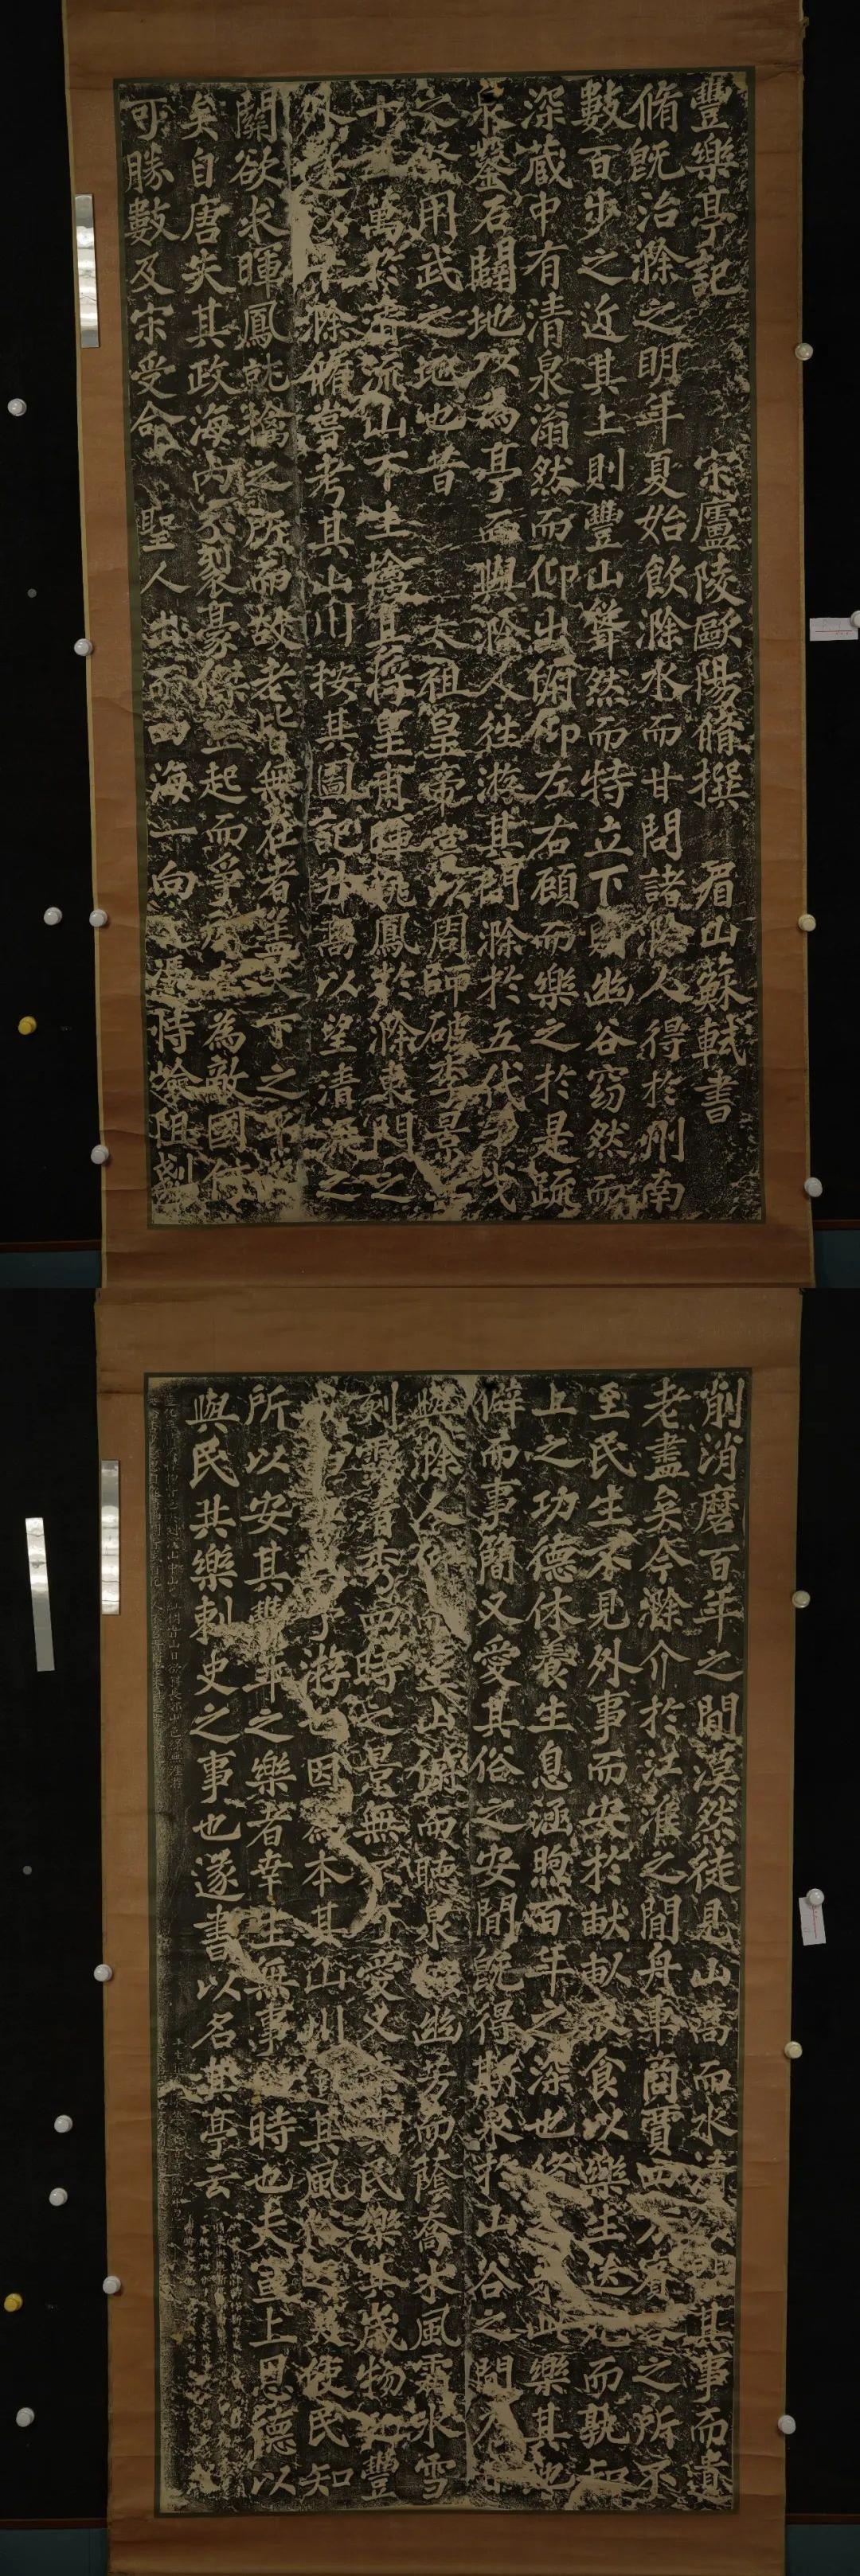 豐樂亭記 宋廬陵歐陽脩撰 眉山蘇軾書
脩旣治滁之明年夏始飲滁水而甘問諸滁人得於州南
數百步之近其上則豐山聳然而特立下則幽谷窈然而
深蔵中有清泉滃然而仰出俯仰左右顧而樂之於是疏
泉鑿石闢地以為亭而與滁人徃遊其間滁於五代干戈
之際用武之地也昔 太祖皇帝嘗以周師破李景兵
十五萬於清流山下生擒其將皇甫暉姚鳳於滁東門之
外遂以平滁脩嘗考其山川按其圖記升高以望清流之
關欲求暉鳳就擒之所而故老皆無在者盖天下之平久
矣自唐失其政海內分裂豪傑並起而爭所在為敵國何
可勝數及宋受命 聖人出而四海一向之憑恃險阻剗
削消磨百年之間漠然徒見山高而水清欲問其事而遺
老盡矣今滁介於江淮之間舟車商賈四方賓客之所不
至民生不見外事而安於畎畝衣食以樂生送死而孰知
上之功德休養生息涵煦百年之深也脩之来此樂其地
僻而事簡又愛其俗之安閒旣得斯泉於山谷之間乃日
與滁人仰而望山俯而聽泉掇幽芳而蔭喬木風霜冰雪
刻露清秀四時之景無不可愛又幸其民樂其歲物之豐
成而喜與予游也因為本其山川道其風俗之美使民知
所以安其豐年之樂者幸生無事之時也夫宣上恩德以
與民共樂刺史之事也遂書以名其亭云